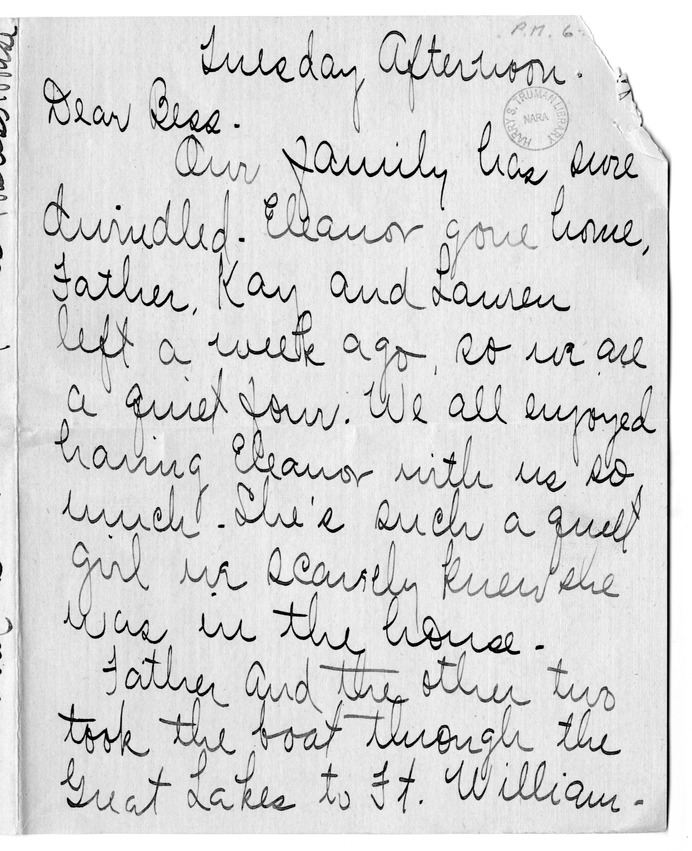 P.M. 6-
Tuesday Afternoon.
HARRY S. TRUMAN LIBRARY
NARA
Dear Bess.
Our family has sure
dwindled. Eleanor gone home,
Father, Kay and Lauren
left a week ago, so we are
a quiet four. We all enjoyed
having Eleanor with us so
much. She's such a quiet
girl we scarcely knew she
was in the house.
Father and the other two
took the boat through the
Great Lakes to Ft. William.